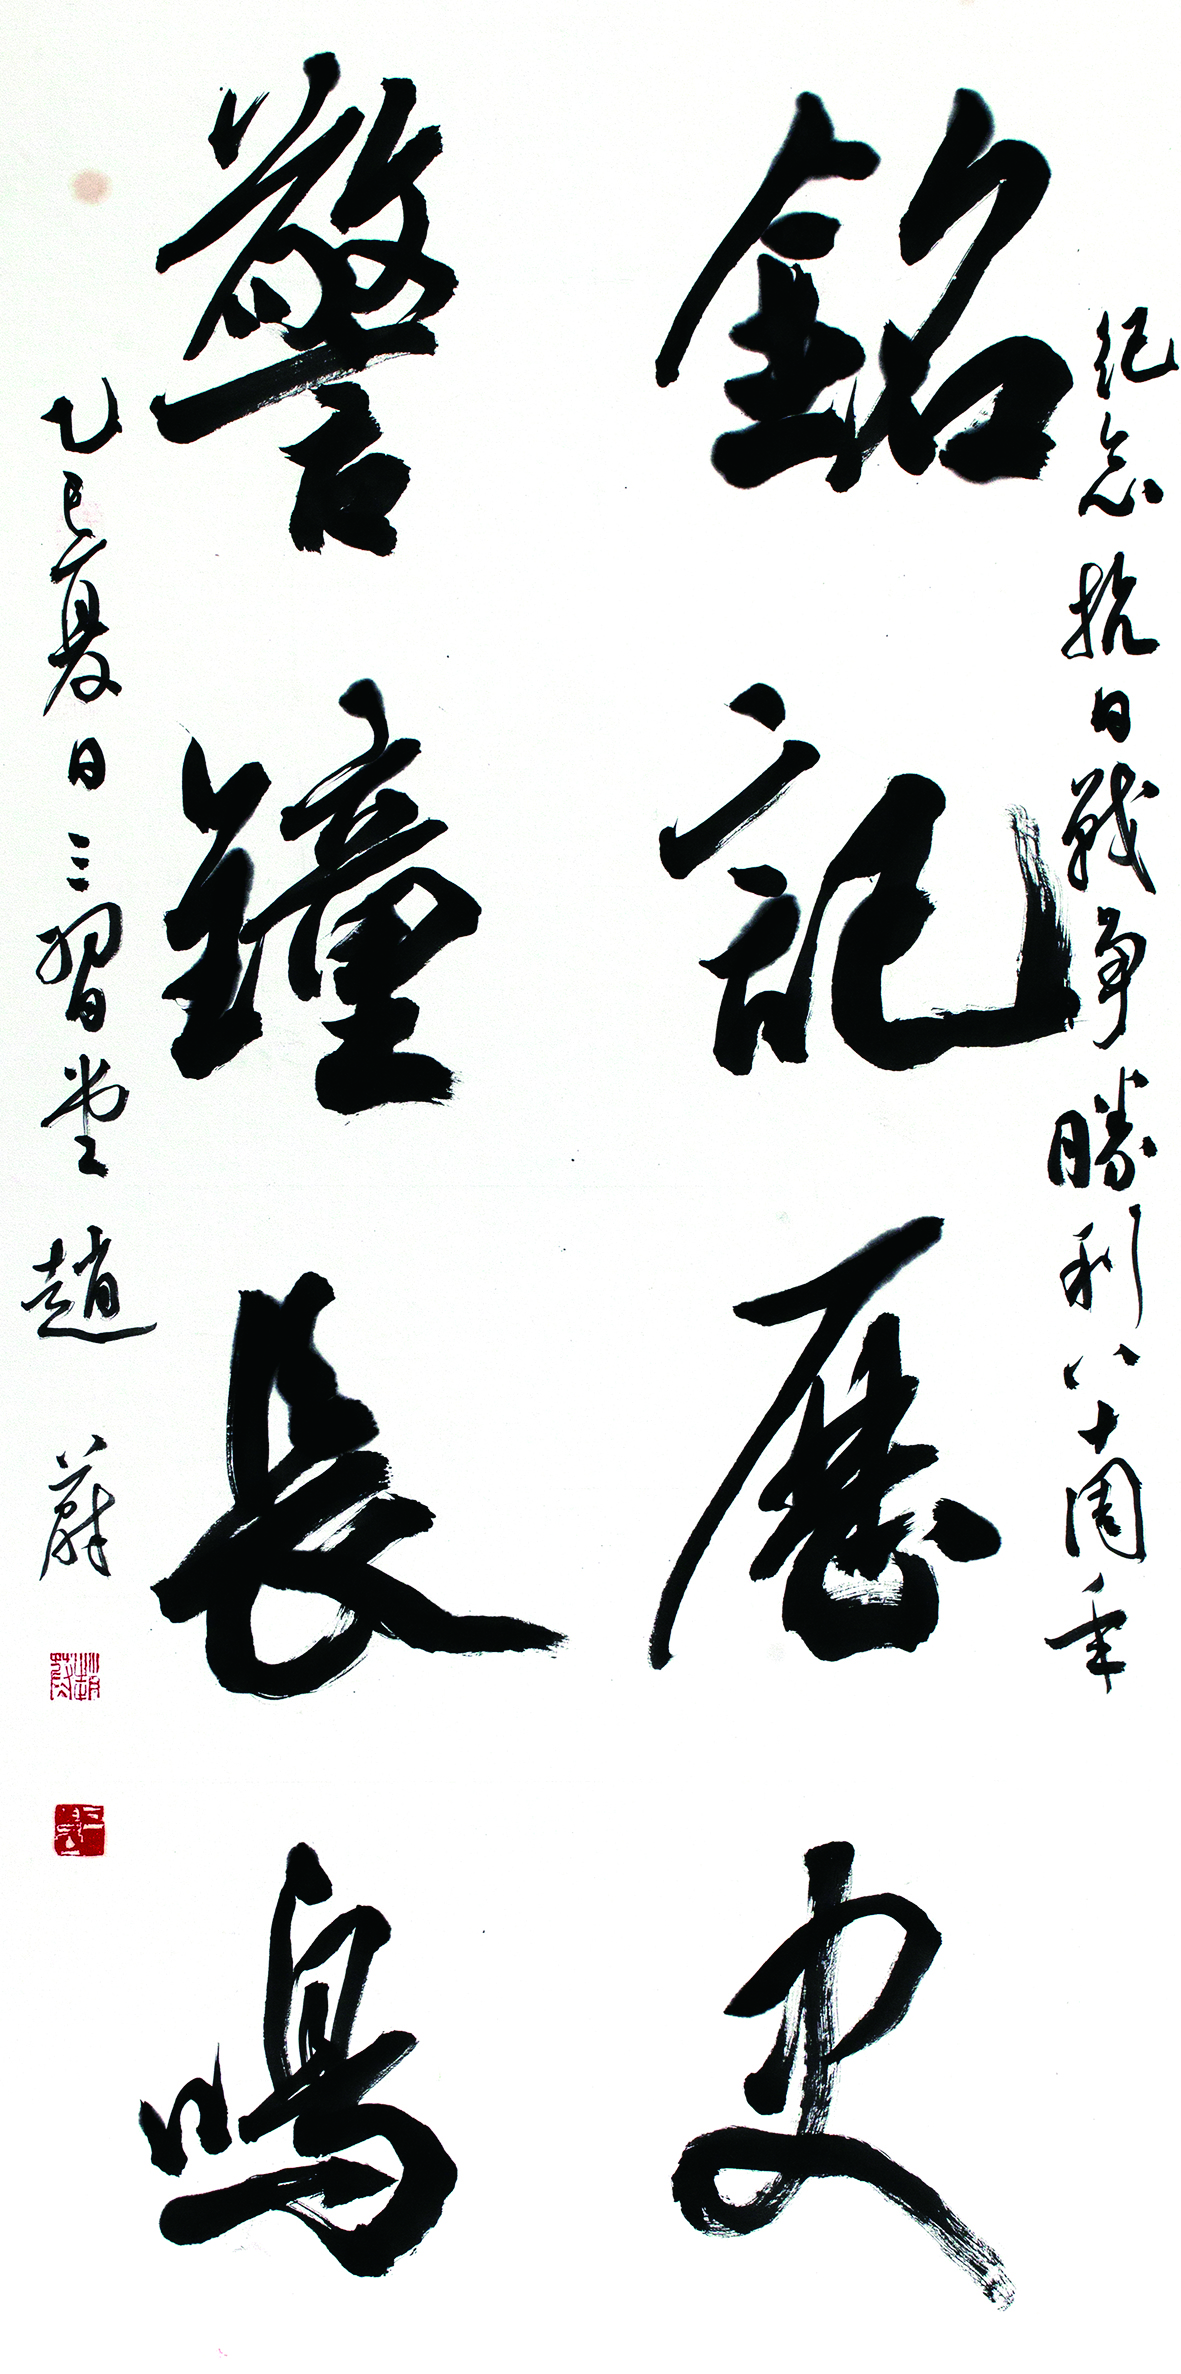 紀念抗日戰爭勝利八十周年
銘記歷史
警鐘長鳴
乙巳夏日三習堂趙蔚